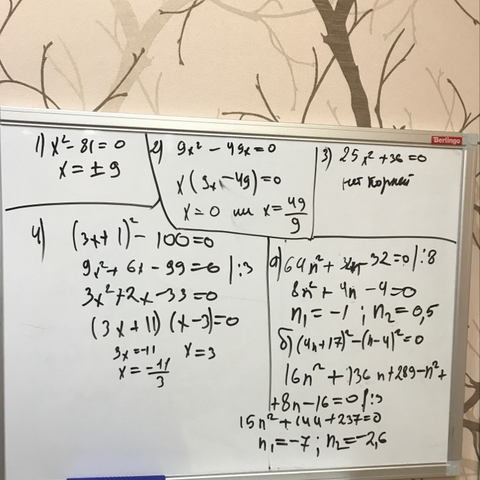 Berlingo
1) x² - 81 = 0
x = ± 9
2) 9x² - 49x = 0
x (9x - 49) = 0
x = 0 или x = 49/9
3) 25x² + 36 = 0
нет корней
4) (3x + 1)² - 100 = 0
9x² + 6x - 99 = 0 | :3
3x² + 2x - 33 = 0
(3x + 11) (x - 3) = 0
3x = -11 x = 3
x = -11/3
а) 64n² + 32n - 32 = 0 | :8
8n² + 4n - 4 = 0
n₁ = -1 ; n₂ = 0,5
б) (4n + 17)² - (n - 4)² = 0
16n² + 136n + 289 - n² +
+ 8n - 16 = 0 | :
15n² + 144 + 237 = 0
n₁ = -7 ; n₂ = -2,6